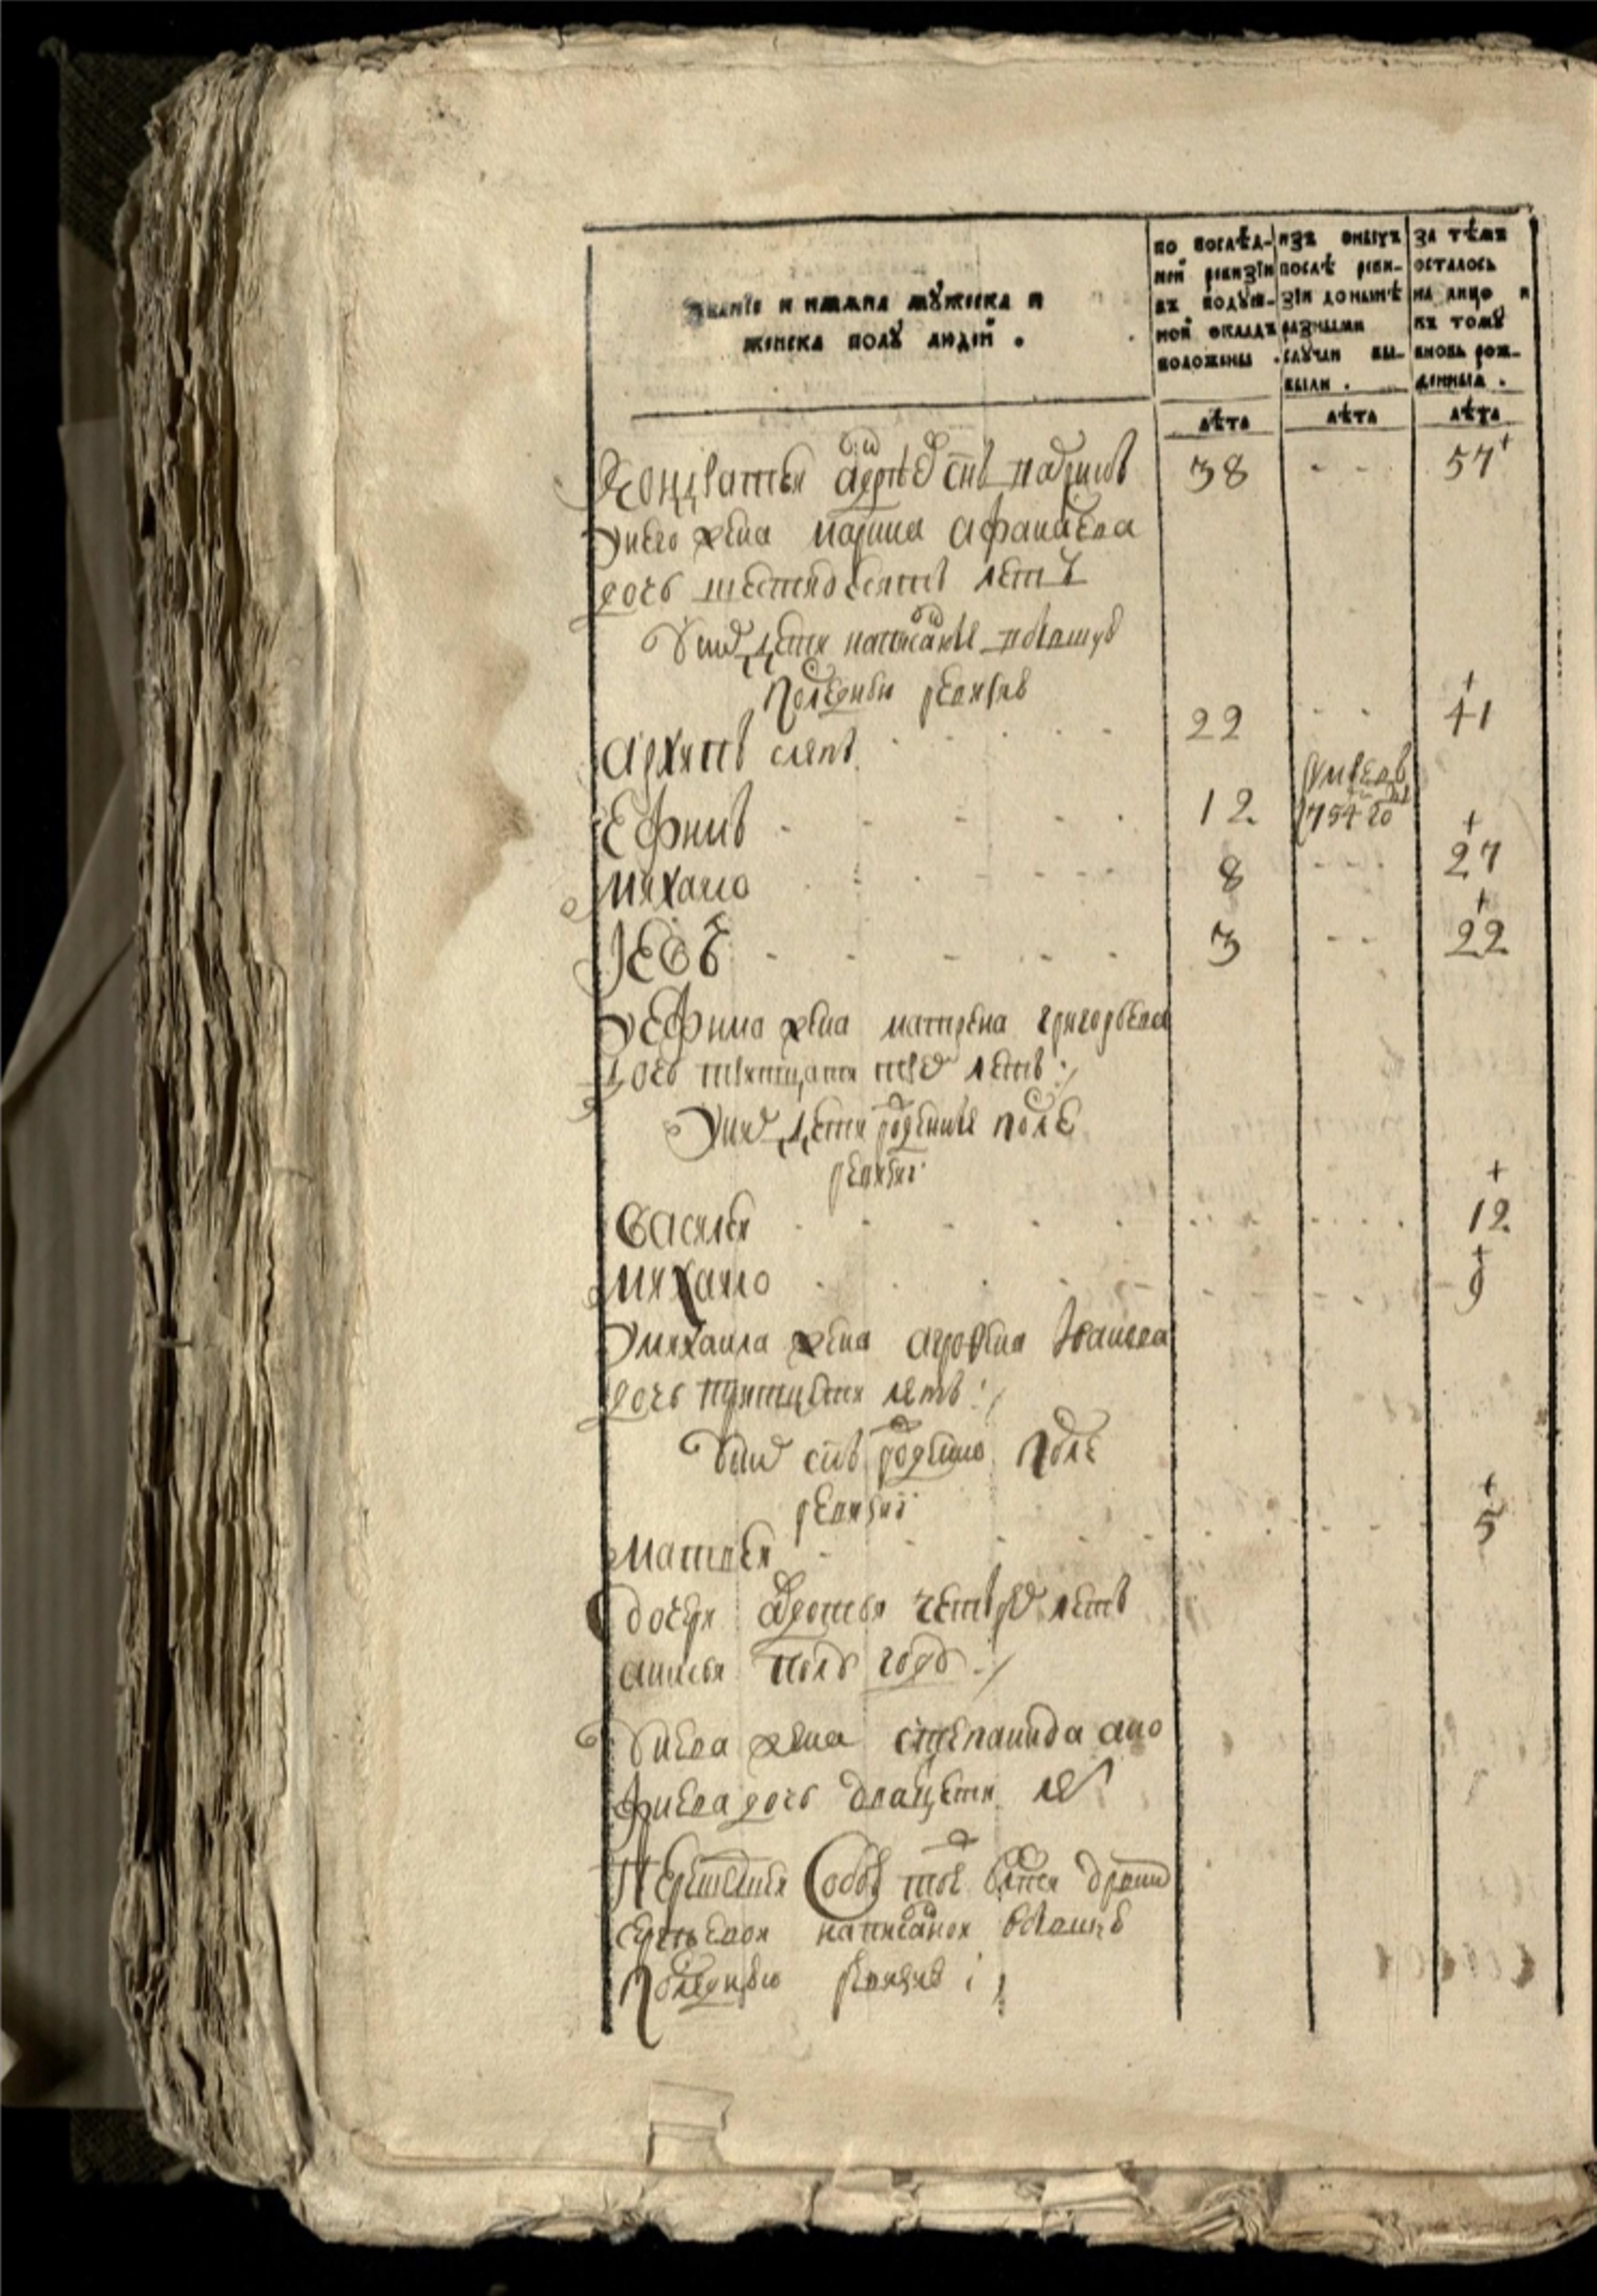 Званїе и имяна мꙋжеска и
женска полꙋ людей .
по послѣд-
ней ревизїи
въ подꙋш-
ной окладъ
положены .
изъ оныхъ
послѣ реви-
зїи донынѣ
разными
слꙋчаи вы-
были .
за тѣмъ
осталось
на лицо и
къ томꙋ
вновь рож-
денныя .
лѣта лѣта лѣта
Кондратеи 38 - - 57
у него жена марина афанасева
дочь шестидесятъ летъ
у них дети написанные
последнеи ревизиі
архипъ слепъ 22 - - 41
Ефимъ 12 умре въ 754 го
михаило 8 - - 27
Иевъ 3 - - 22
у ефима жена матрена григорьева
дочь тритцати трех летъ
у них дети рожденные после
ревизиі
василеи 12
михаило 9
у михаила жена агрофена Иванова
дочь тритцети летъ
у них снъ рожденно после
ревизиі
матвеи 5
дочери летъ
анисья полъ года
у иева жена степанида ано
фриева дочь дватцети ле
написанои
последнею ревизиі